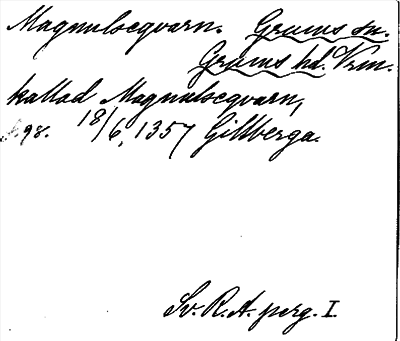 Magnulseqvarn. Grums sn.
Grums hd. Vrm.
kallad Magnulseqvarn,
s. 98. 18/6, 1357 Gillberga.
Sv. R. A. perg. I